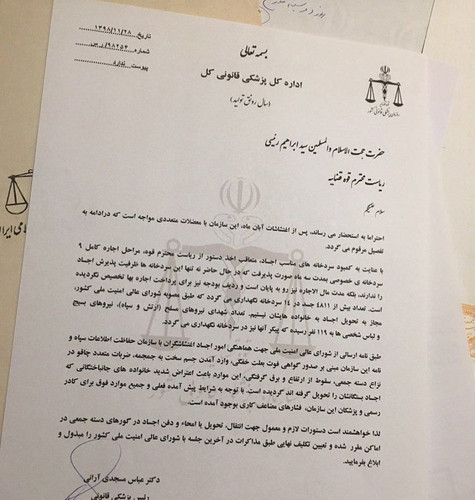 بسمه تعالی
تاریخ ۱۳۹۸/۱۱/۲۸
شماره ۹۸۲۵۳/ر س
پیوست ندارد
سازمان پزشکی قانونی کشور
اداره کل پزشکی قانونی کل
(سال رونق تولید)
حضرت حجت الاسلام والمسلمین سید ابراهیم رئیسی
ریاست محترم قوه قضاییه
سلام علیکم
احتراما به استحضار می رساند، پس از اغتشاشات آبان ماه، این سازمان با معضلات متعددی مواجه است که درادامه به
تفصیل مرقوم می گردد.
با عنایت به کمبود سردخانه های مناسب اجساد، متعاقب اخذ دستور از ریاست محترم قوه، مراحل اجاره کامل ۹
سردخانه ی خصوصی بمدت سه ماه صورت پذیرفت که در حال حاضر نه تنها این سردخانه ها ظرفیت پذیرش اجساد
را ندارند، بلکه مدت مال الاجاره نیز رو به پایان است و ردیف بودجه نیز برای پرداخت اجاره بها تخصیص نگردیده
است. تعداد بیش از ٤٨١١ جسد در ١٤ سردخانه نگهداری می گردد که طبق مصوبه شورای عالی امنیت ملی کشور،
مجاز به تحویل اجساد به خانواده هایشان نیستیم. تعداد شهدای نیروهای مسلح (ارتش و سپاه)، نیروهای بسیج
و لباس شخصی ها به ۱۱۹ نفر رسیده که پیکر آنها نیز در سردخانه نگهداری می گردد.
طبق نامه ارسالی از شورای عالی امنیت ملی جهت هماهنگی امور اجساد اغتشاشگران با سازمان حفاظت اطلاعات سپاه و
نامه این سازمان مبنی بر صدور گواهی فوت بعلت خفگی، وارد آمدن جسم سخت به جمجمه، ضربات متعدد چاقو در
نزاع دسته جمعی، سقوط از ارتفاع و برق گرفتگی، این موارد باعث اعتراض شدید خانواده های جانباختگانی که
اجساد بستگانشان را تحویل گرفته اند گردیده است. با توجه به شرایط پیش آمده فعلی و جمیع موارد فوق برای کادر
رسمی و پزشکان این سازمان، فشارهای مضاعف کاری بوجود آمده است.
لذا خواهشمند است دستورات لازم و معمول جهت انتقال، تحویل یا امحاء و دفن اجساد در گورهای دسته جمعی در
اماکن مقرر شده و تعیین تکلیف نهایی طبق مذاکرات در آخرین جلسه با شورای عالی امنیت ملی کشور را مبذول و
ابلاغ بفرمایید.
دکتر عباس مسجدی آرانی
رئیس پزشکی قانونی